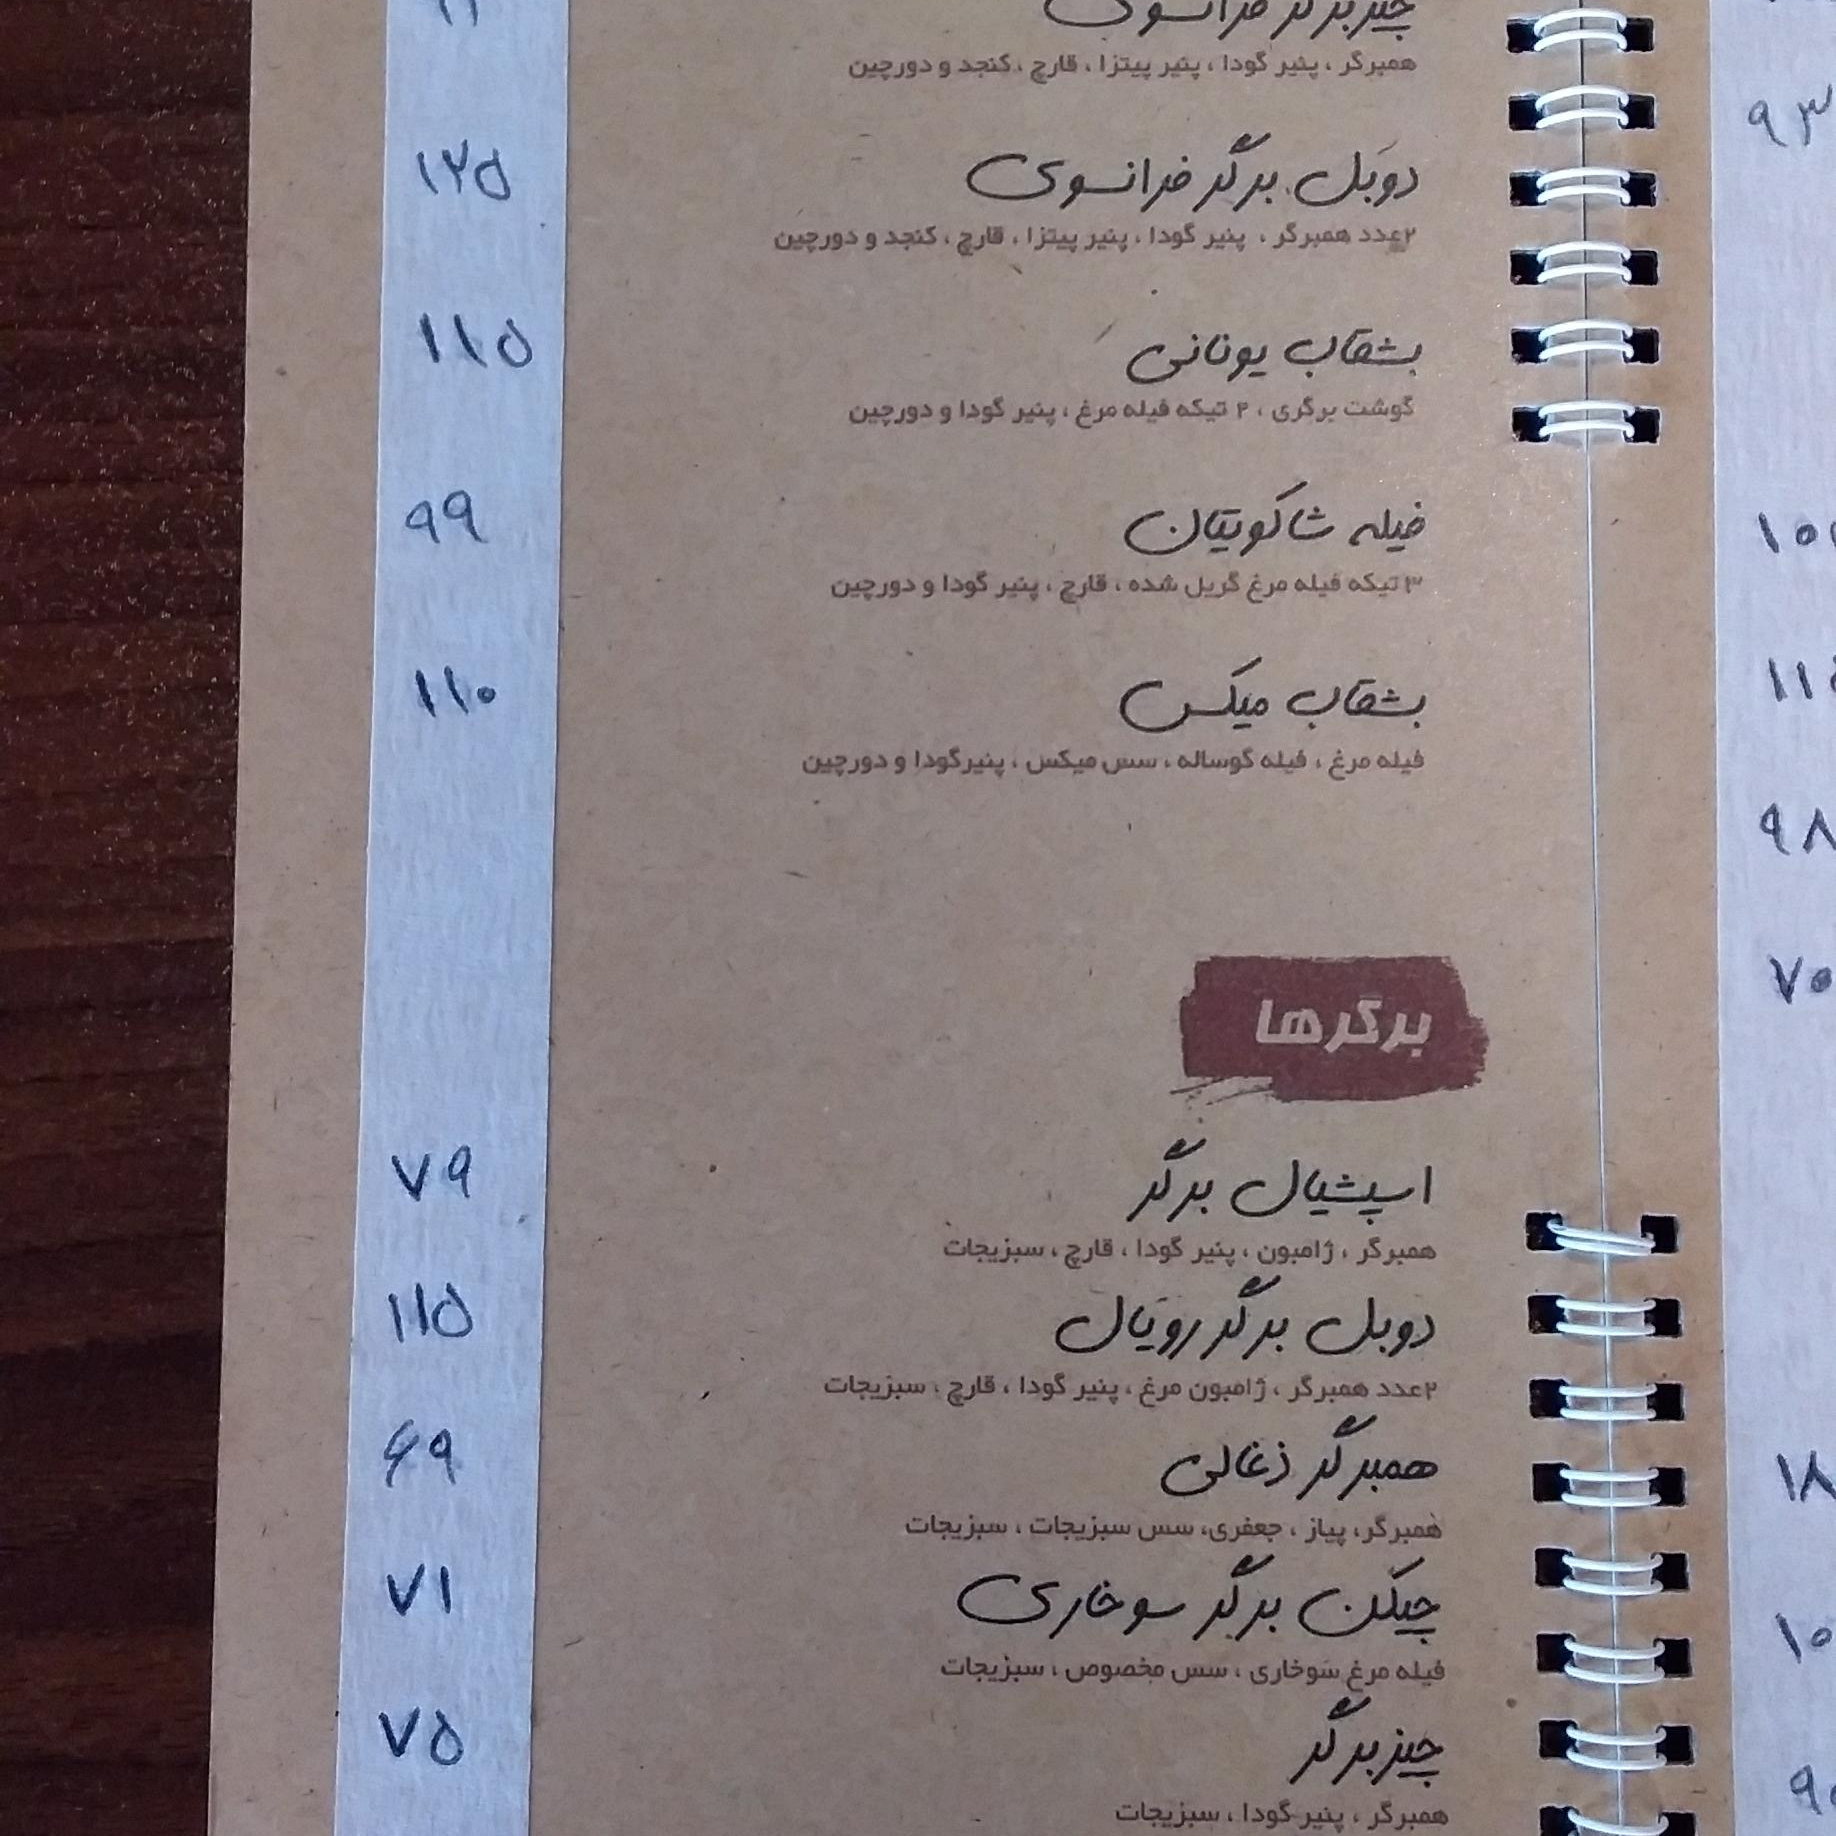 چیزبرگر فرانسوی
همبرگر ، پنیر گودا ، پنیر پیتزا ، قارچ ، کنجد و دورچین
دوبل برگر فرانسوی ۱۲۵
۲عدد همبرگر ، پنیر گودا ، پنیر پیتزا ، قارچ ، کنجد و دورچین
بشقاب یونانی ۱۱۵
گوشت برگری ، ۲ تیکه فیله مرغ ، پنیر گودا و دورچین
فیله شاکویتان ۹۹
۳ تیکه فیله مرغ گریل شده ، قارچ ، پنیر گودا و دورچین
بشقاب میکس ۱۱۰
فیله مرغ ، فیله گوساله ، سس میکس ، پنیرگودا و دورچین
برگرها
اسپشیال برگر ۷۹
همبرگر ، ژامبون ، پنیر گودا ، قارچ ، سبزیجات
دوبل برگر رویال ۱۱۵
۲عدد همبرگر ، ژامبون مرغ ، پنیر گودا ، قارچ ، سبزیجات
همبرگر ذغالی ۶۹
همبرگر، پیاز ، جعفری، سس سبزیجات ، سبزیجات
چیکن برگر سوخاری ۷۱
فیله مرغ سوخاری ، سس مخصوص ، سبزیجات
چیزبرگر ۷۵
همبرگر ، پنیر گودا ، سبزیجات
۹۳
۹۸
۷۵